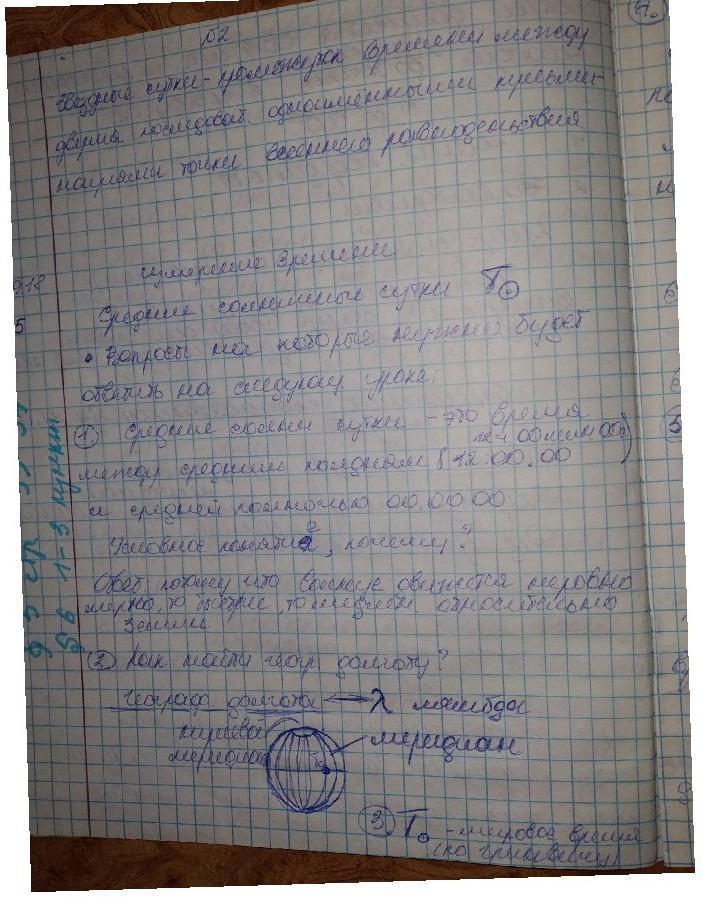 52
Звездные сутки - промежуток времени между
двумя последоват. одноименными кульми-
нациями точки весеннего равноденствия
9.18
5
измерение времени
Средние солнечные сутки T⊙
• Вопросы на которые нужно будет
ответить на следующ уроке:
① Средние солнеч сутки - это время
между средним полуднем (12.00.00
и средней полночью 00.00 00
Условное понятие, почему?
Ответ, потому что Солнце движется неравно
мерно, то быстрее, то медленн относительно
Земли
② Как найти геогр. долготу?
Географ долгота λ лямбда
нулевой
меридиан
меридиан
③ T₀ - мировое время
(по гринвичу)
§ 6 1-3 пункт